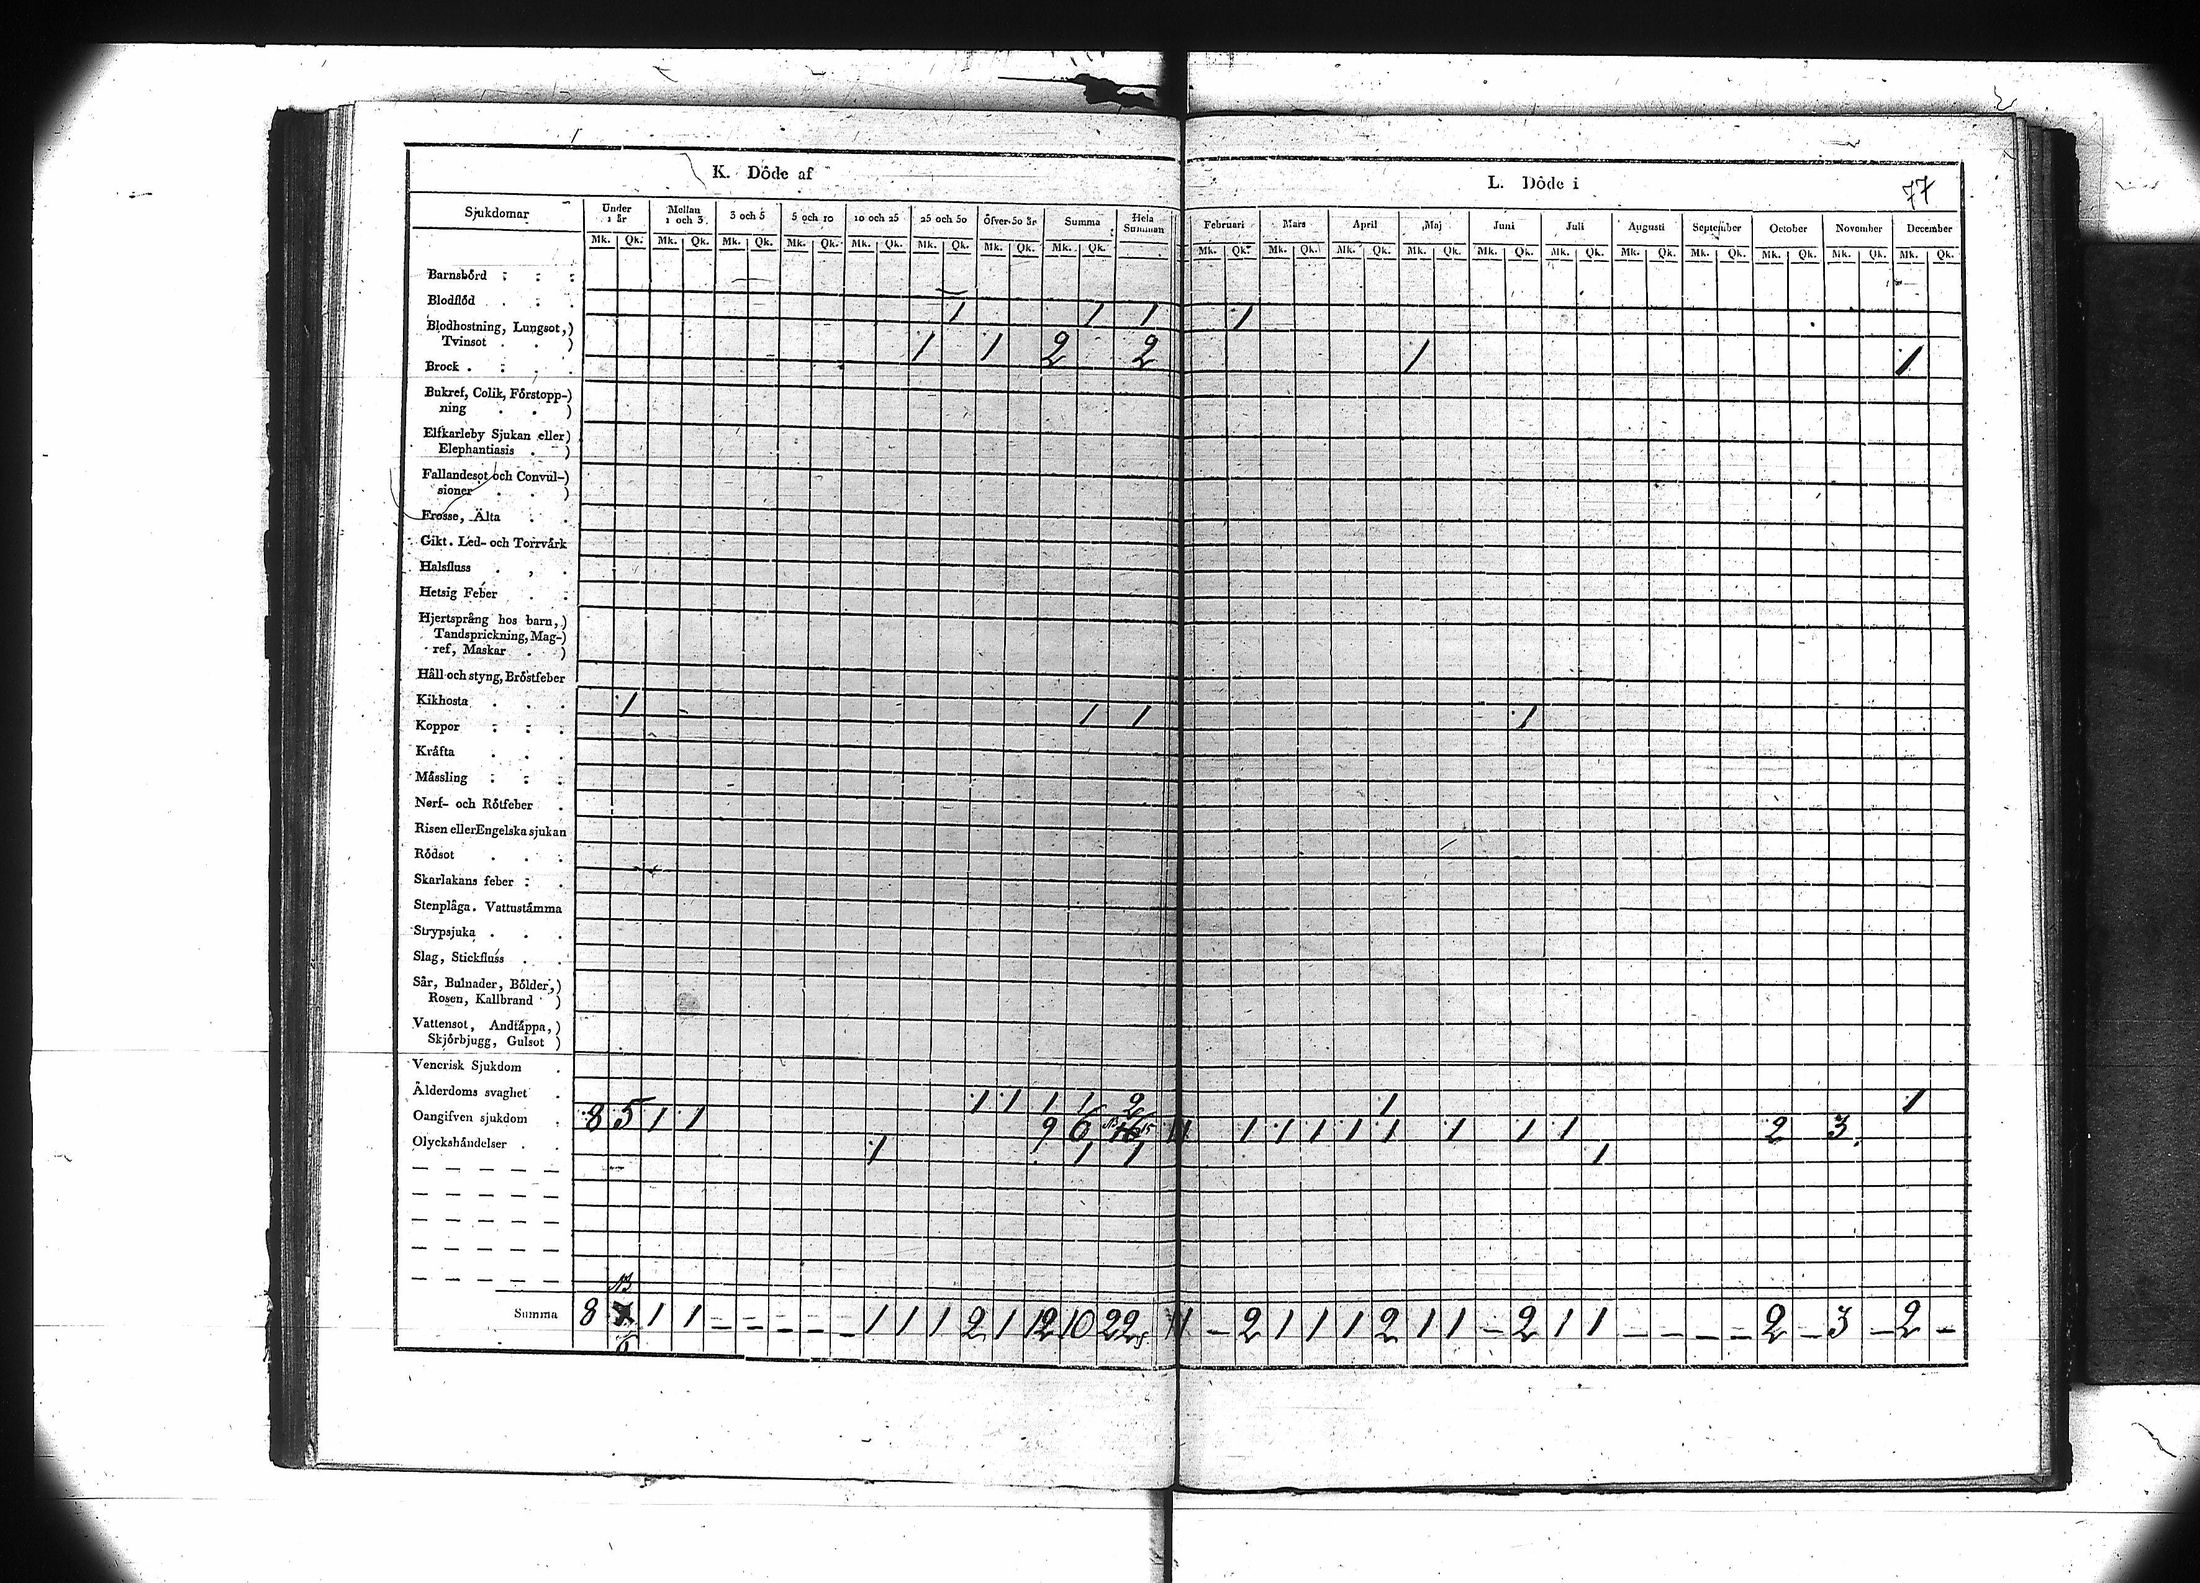 K. Döde af
L. Döde i
77
Sjukdomar Under 1 år Mellan 1 och 3 3 och 5 5 och 10 10 och 25 25 och 50 Öfver 50 år Summa Hela Summan Februari Mars April Maj Juni Juli Augusti September October November December
Mk. Qk. Mk. Qk. Mk. Qk. Mk. Qk. Mk. Qk. Mk. Qk. Mk. Qk. Mk. Qk. Mk. Qk. Mk. Qk. Mk. Qk. Mk. Qk. Mk. Qk. Mk. Qk. Mk. Qk. Mk. Qk. Mk. Qk. Mk. Qk. Mk. Qk.
Barnsbörd
Blodflöd 1 1 1 1
Blodhostning, Lungsot,)
Tvinsot . . ) 1 1 2 2 1 1
Brock
Bukref, Colik, Förstopp-)
ning . . )
Elfkarleby Sjukan eller)
Elephantiasis . )
Fallandesot och Convul-)
sioner . . )
Frosse, Älta
Gikt. Led- och Torrvärk
Halsfluss
Hetsig Feber
Hjertsprång hos barn,)
Tandsprickning, Mag-)
ref, Maskar . )
Håll och styng, Bröstfeber
Kikhosta 1 1 1 1
Koppor
Kräfta
Mässling
Nerf- och Rötfeber
Risen eller Engelska sjukan
Rödsot
Skarlakans feber
Stenplåga. Vattustämma
Strypsjuka
Slag, Stickfluss
Sår, Bulnader, Bölder,)
Rosen, Kallbrand )
Vattensot, Andtäppa,)
Skjörbjugg, Gulsot )
Venerisk Sjukdom
Ålderdoms svaghet 1 1 1 1 2 1 1
Oangifven sjukdom 8 5 1 1 9 6 15 1 1 1 1 1 1 1 1 1 2 3
Olyckshändelser 1 1 1 1
Summa 8 6 1 1 – – – – – 1 1 1 2 1 12 10 22 – 2 1 1 1 2 1 1 – 2 1 1 – – – – 2 – 3 – 2 –